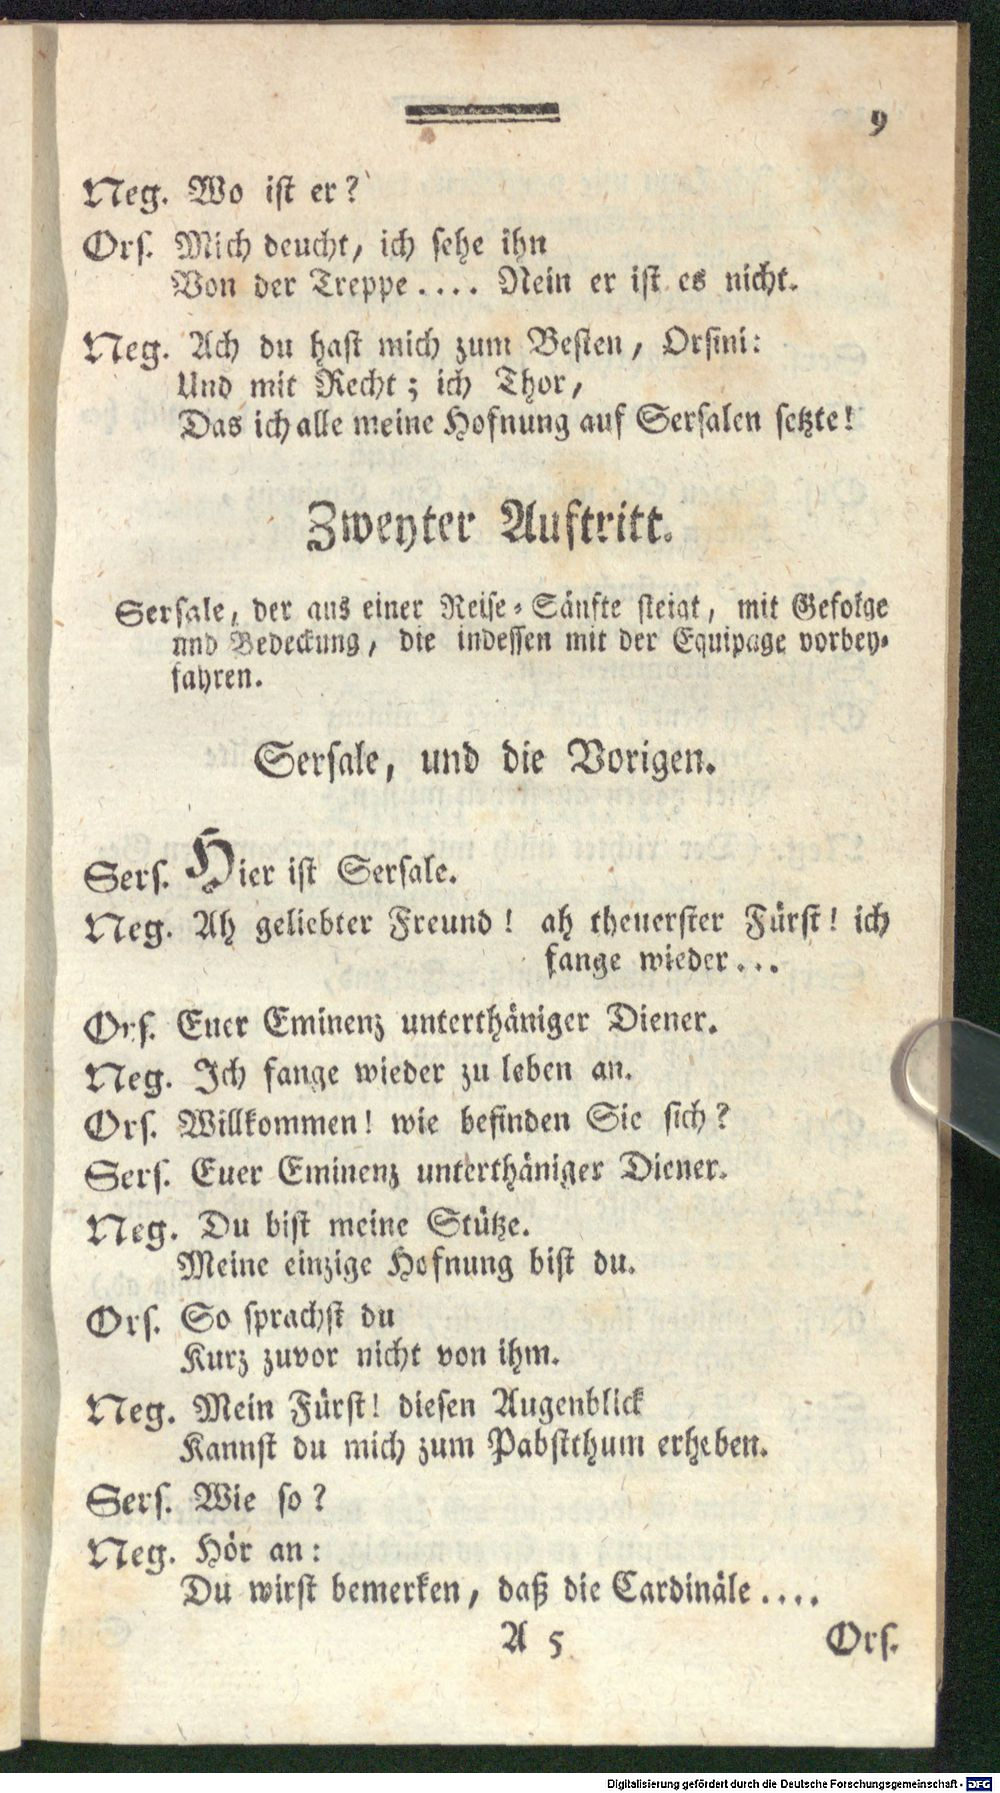 9
Neg. Wo ist er?
Ors. Mich deucht, ich sehe ihn
Von der Treppe.... Nein er ist es nicht.
Neg. Ach du hast mich zum Besten, Orsini:
Und mit Recht; ich Thor,
Das ich alle meine Hofnung auf Sersalen setzte!
Zweyter Auftritt.
Sersale, der aus einer Reise-Sänfte steigt, mit Gefolge
und Bedeckung, die indessen mit der Equipage vorbey-
fahren.
Sersale, und die Vorigen.
Sers. Hier ist Sersale.
Neg. Ah geliebter Freund! ah theuerster Fürst! ich
fange wieder...
Ors. Euer Eminenz unterthäniger Diener.
Neg. Ich fange wieder zu leben an.
Ors. Willkommen! wie befinden Sie sich?
Sers. Euer Eminenz unterthäniger Diener.
Neg. Du bist meine Stütze.
Meine einzige Hofnung bist du.
Ors. So sprachst du
Kurz zuvor nicht von ihm.
Neg. Mein Fürst! diesen Augenblick
Kannst du mich zum Pabstthum erheben.
Sers. Wie so?
Neg. Hör an:
Du wirst bemerken, daß die Cardinäle....
A 5 Ors.
Digitalisierung gefördert durch die Deutsche Forschungsgemeinschaft - DFG